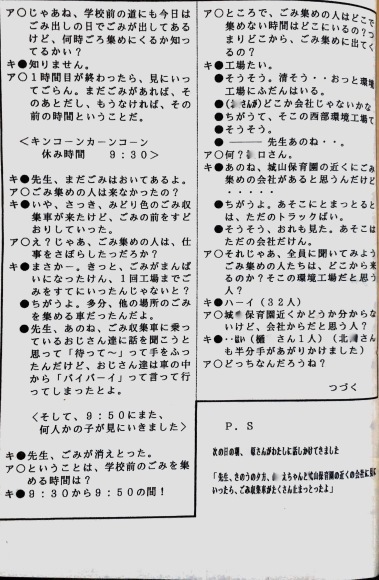 ア○じゃあね、学校前の道にも今日は
ごみ出しの日でごみが出してある
けど、何時ごろ集めにくるか知っ
てるかい?
キ●知りません。
ア○1時間目が終わったら、見にいっ
てごらん。まだごみがあれば、そ
のあとだし、もうなければ、その
前の時間ということだ。
<キンコーンカーンコーン
休み時間 9:30>
キ●先生、まだごみはおいてあるよ。
ア○ごみ集めの人は来なかったの?
キ●いや、さっき、みどり色のごみ収
集車が来たけど、ごみの前をすど
おりしていった。
ア○え?じゃあ、ごみ集めの人は、仕
事をさぼらしたっだろか?
キ●まさかー。きっと、ごみがまんぱ
いになったけん、1回工場までご
みをすてにいったんじゃないと?
●ちがうよ。多分、他の場所のごみ
を集める車だったんだよ。
●先生、あのね、ごみ収集車に乗っ
ているおじさん達に話を聞こうと
思って「待って~」って手をふっ
たんだけど、おじさん達は車の中
から「バイバーイ」って言って行
ってしまったとよ。
<そして、9:50にまた、
何人かの子が見にいきました>
キ●先生、ごみが消えとった。
ア○ということは、学校前のごみを集
める時間は?
キ●9:30から9:50の間!
ア○ところで、ごみ集めの人はどこで
集めない時間はどこにいるの?つ
まりどこから、ごみ集めに出てく
るの?
キ●工場たい。
●そうそう。清そう・・おっと環境
工場にふだんはいる。
●(さんが)どこか会社じゃないかな
●ちがうて、そこの西部環境工場て
●そうそう。
●――― 先生あのね・・。
ア○何?口さん。
キ●あのね、城山保育園の近くにごみ
集めの会社があると思うんだけど
・・・・・
●ちがうよ。あそこにとまっとると
は、ただのトラックばい。
●そうそう、おれも見た。あそこは
ただの会社だけん。
ア○それじゃあ、全員に聞いてみよう
ごみ集めの人たちは、どこから来
るのか?そこの環境工場だと思う
人?
キ●ハーイ(32人)
ア○城保育園近くかどうか分からな
いけど、会社からだと思う人?
キ●・・はい(樋さん1人)(北さん
も半分手があがりかけました)
ア○どっちなんだろうね?
つづく
P.S
次の日の朝、原さんがわたしに話しかけてきました
「先生、きのうの夕方、えちゃんと城山保育園の近くの会社に
いったら、ごみ収集車がたくさん止まっとったよ」